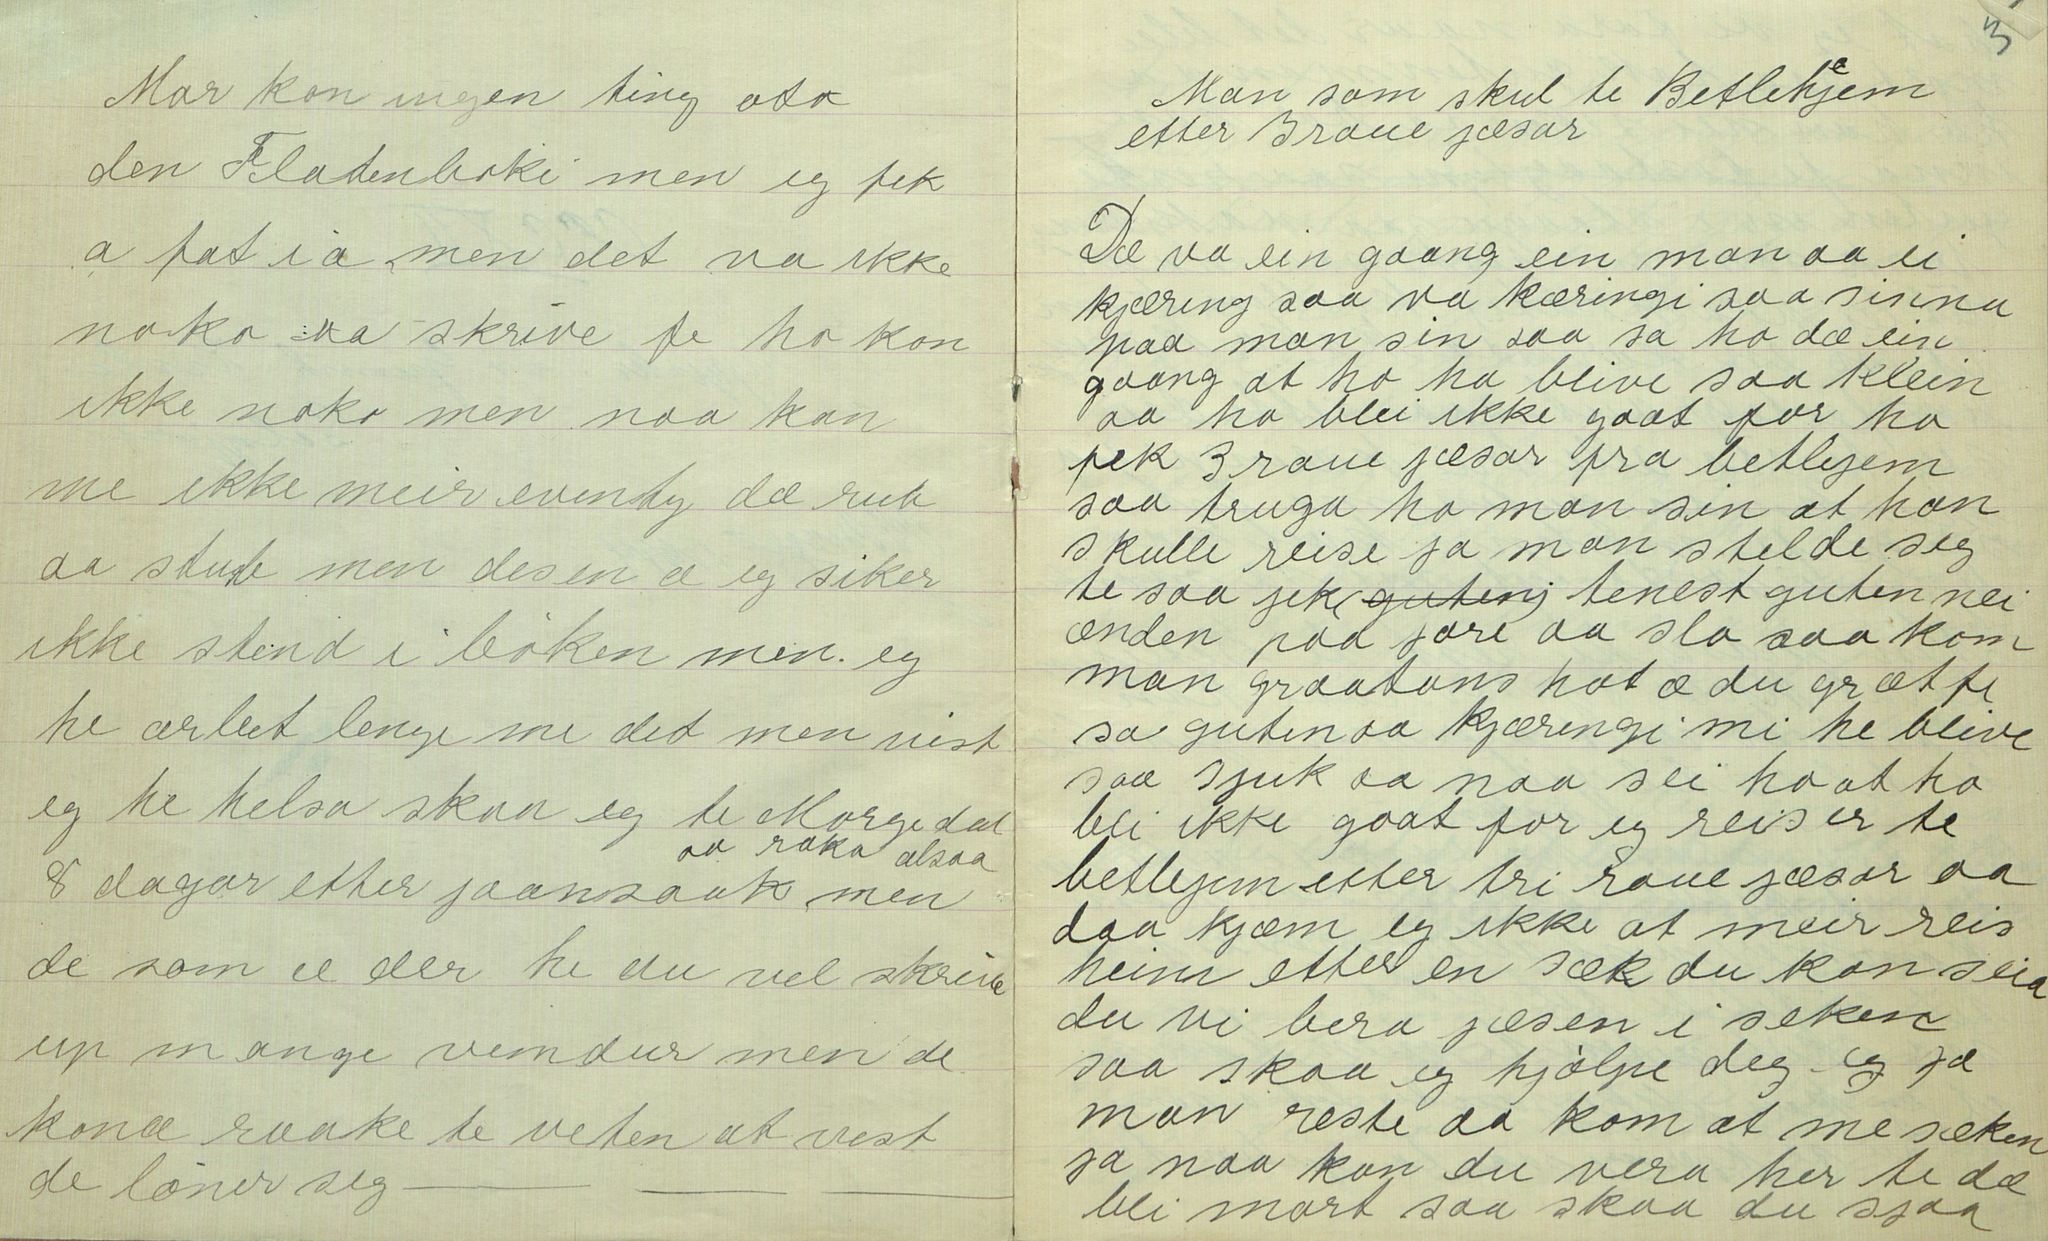 Mor kon ingen ting ota
den Fladenboki men eg fek
a fat i a men det va ikke
noko aa skrive fe ho kon
ikke noko men naa kan
me ikke meir eventy dæ rub
aa stub men desen æ eg siker
ikke stend i böken men eg
he arbeet lenge me det men vist
eg he helsa skaa eg te Morgedal
aa raka alsaa
8 dagar etter jaansaak men
de som æ der he du vel skrive
up mange vendur men de
konæ raake te veten at vest
de löner seg
3
Man som skul te Betlehjem
etter 3 raue jæsar
Dæ va ein gaang ein man aa ei
kjæring saa va kæringi saa sinna
paa man sin saa sa ho dæ ein
gaang at ho ha blive saa klein
aa ho blei ikke goat for ho
fek 3 raue jæsar fra betlejem
saa truga ho man sin at han
skulle reise ja man stelde seg
te saa jek (guten) tenest guten nei
ænden paa jore aa slo saa kom
man graatans hot æ du græt fe
sa guten aa kjæringi mi he blive
saa sjuk aa naa sei ho at ho
bli ikke goat for eg reiser te
betlejem etter tri raue jæsar aa
daa kjæm eg ikke at meir reis
heim etter en sæk du kan seia
du vi bera jæsen i seken
saa skaa eg hjölpe deg eg ja
man reste aa kom at me sæken
ja naa kan du vera her te dæ
bli mört saa skaa du sjaa